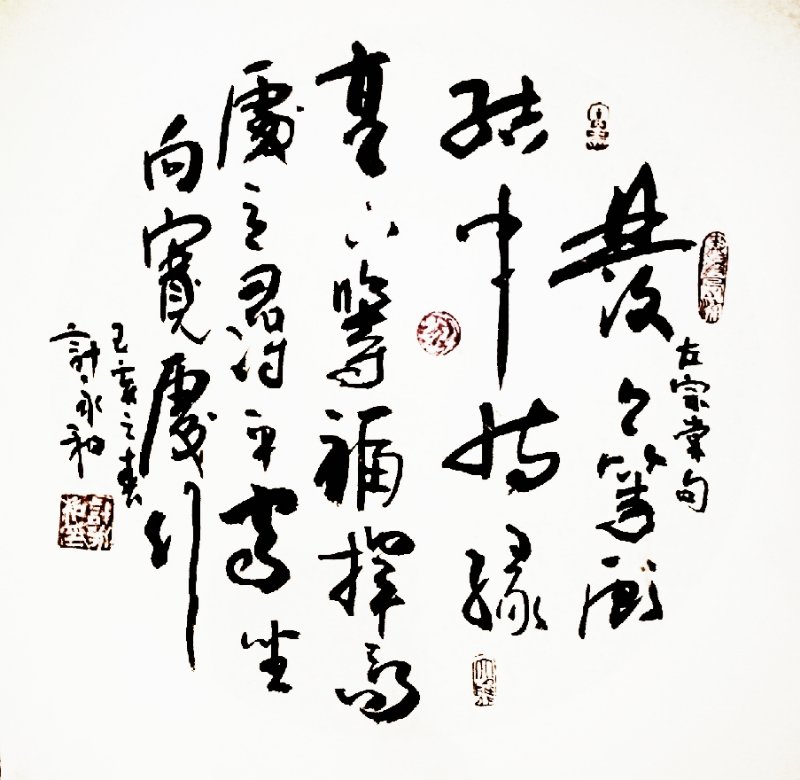 發上等願
結中等緣
享下等福擇高
處立就平處坐
向寬處行
左宗棠句
己亥之春
計永和